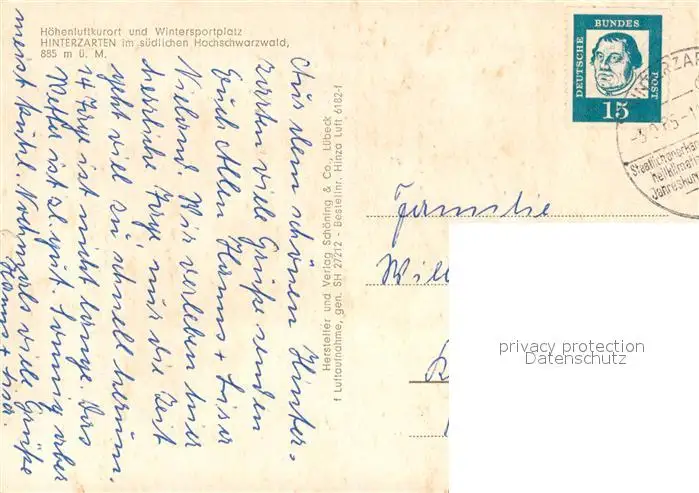 Höhenluftkurort und Wintersportplatz
HINTERZARTEN im südlichen Hochschwarzwald,
885 m ü. M.
Aus dem schönen Hinter-
zarten viele Grüße senden
Euch Allen Hanns + Liser
Nieland. Wir verleben hier
herrliche Tage, nur die Zeit
geht viel zu schnell herum.
14 Tage ist nicht lange. Das
Wetter ist zl. gut. Sonnig aber
meist kühl. Nochmals viele Grüße
Hanns + Liser
Hersteller und Verlag Schöning & Co., Lübeck
† Luftaufnahme, gen. SH 27212 - Bestellnr. Hinza Luft 6182-f
DEUTSCHE BUNDES POST
15
HINTERZAR
Staatlich anerkan
heilklimati
Jahreskur
Familie
Will
privacy protection
Datenschutz